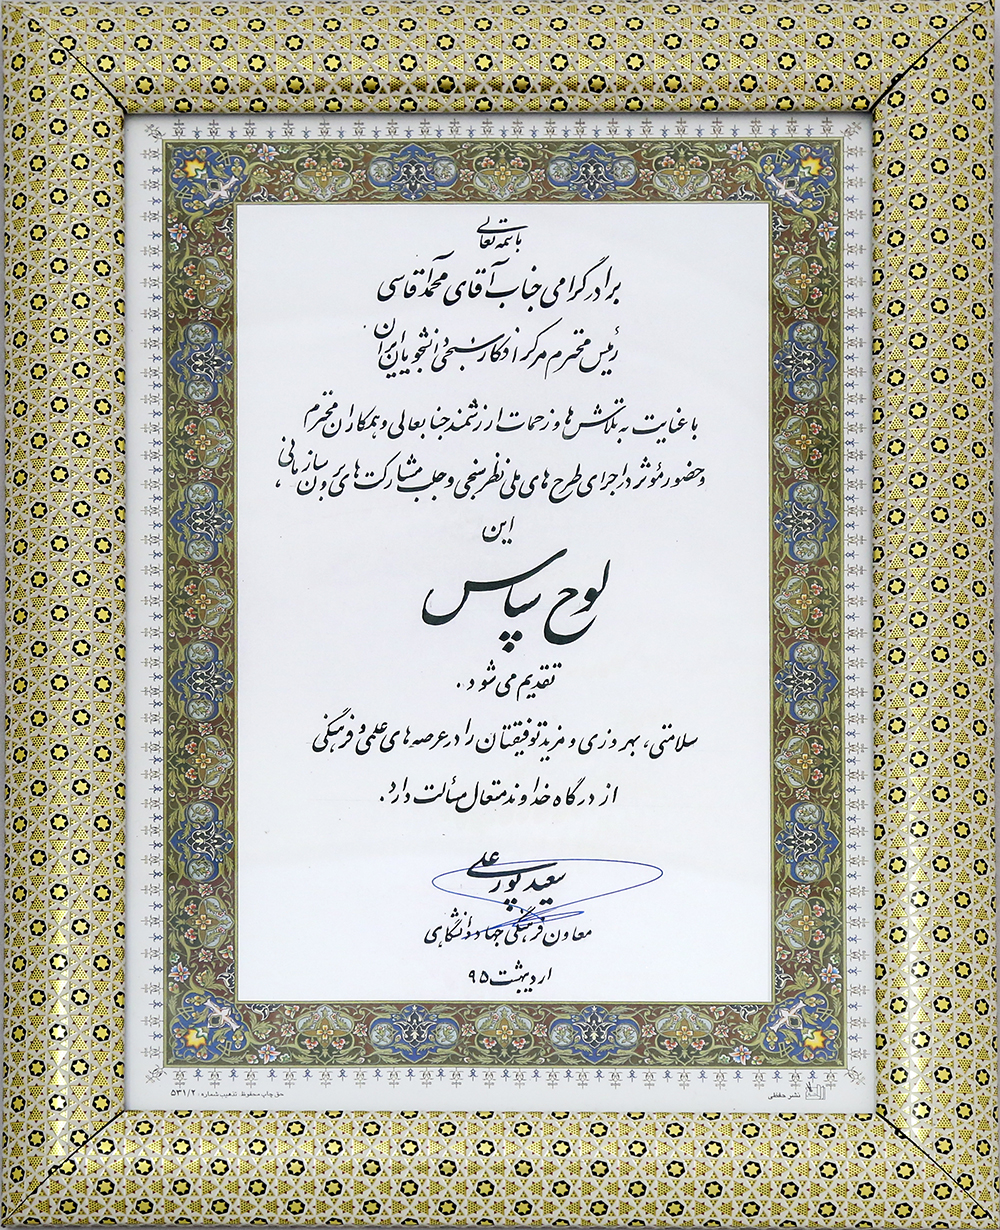 باسمه تعالی
برادر گرامی جناب آقای محمد آقاسی
رئیس محترم مرکز افکارسنجی دانشجویان ایران
با عنایت به تلاش ها و زحمات ارزشمند جنابعالی و همکاران محترم
و حضور مؤثر در اجرای طرح های ملی نظرسنجی و جلب مشارکت های برون سازمانی،
این
لوح سپاس
تقدیم می شود.
سلامتی، بهروزی و مزید توفیقتان را در عرصه های علمی و فرهنگی
از درگاه خداوند متعال مسألت دارد.
سعید پورعلی
معاون فرهنگی جهاددانشگاهی
اردیبهشت ۹۵
نشر حفظی
حق چاپ محفوظ. تذهیب شماره: ۵۳۱/۲